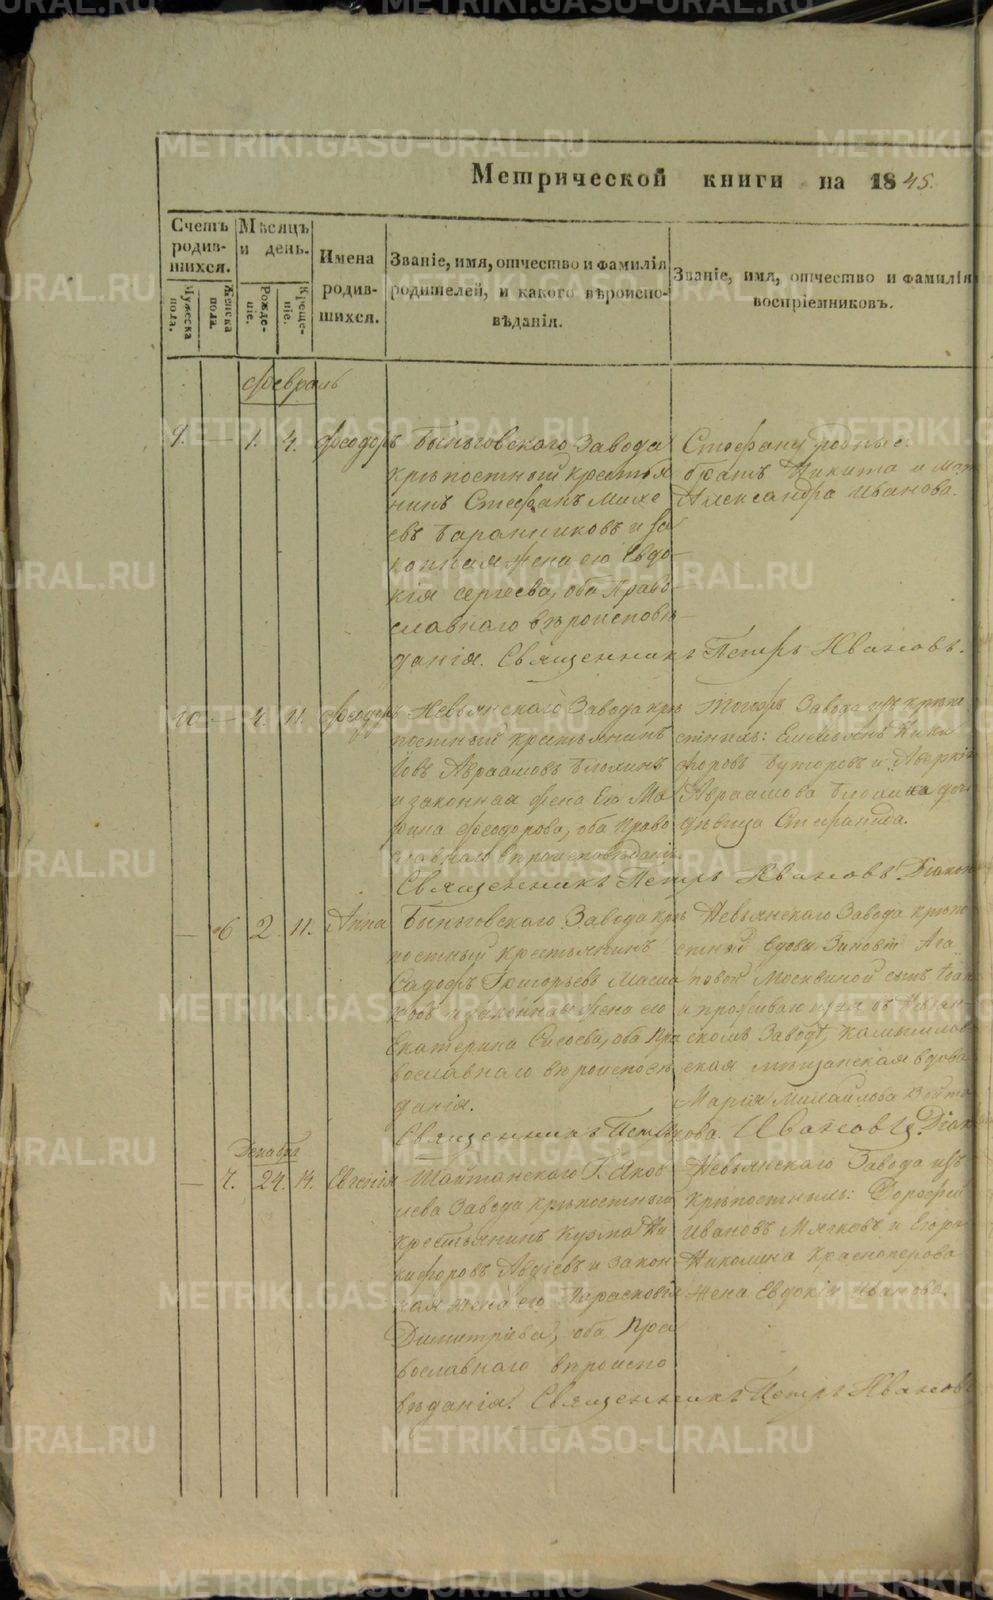 METRIKI.GASO-URAL.RU
Метрической книги на 1845.
Счетъ родив-шихся.
Мужеска пола.
Женска пола.
Мѣсяцъ и день.
Рожде-ніе.
Креще-ніе.
Имена родив-шихся.
Званіе, имя, отчество и фамилія родителей, и какого вѣроиспо-вѣданія.
Званіе, имя, отчество и фамилія воспріемниковъ.
Февраль
9. — 1. 4. Феодоръ
Быньговскаго Завода
крѣпостный крестья
нинъ Стефанъ Михе
евъ Баранниковъ и за
конная жена его Евдо-
кія Сергеева, оба Право
славнаго вѣроисповѣ-
данія. Священникъ Петръ Ивановъ.
Стефану родные:
братъ Никита и
Александра Иванова.
10 — 4. 11. Феодоръ
Невьянскаго Завода крѣ
постный крестьянинъ
Іовъ Авраамовъ
и законная жена Его Ма
рина Феодорова, оба Право
славнаго вѣроисповѣданія.
Священникъ Петръ Ивановъ Діакон
Тогожъ Завода изъ крѣпо
стныхъ: Емельянъ Ники
форовъ Буторовъ и
Авраамова
дѣвица Степанида.
— 6 2. 11. Анна
Быньговскаго Завода крѣ
постный крестьянинъ
Григорьевъ
ковъ и законная жена его
Екатерина Сысоева, оба Пра
вославнаго вѣроисповѣ
данія.
Священникъ Петръ Ивановъ. Діак
Невьянскаго Завода крѣпо
стной вдовы Зиновіи Ага
повой Москвиной сынъ
и проживающая въ Невьян-
скомъ Заводѣ, Камышлов
ская мѣщанская вдова
Марія Михайлова
кова.
Декабрь
— 7. 24. 14. Евгенія
Шайтанскаго Г. Яков
лева Завода крѣпостный
крестьянинъ Кузма Ни
кифоровъ Авдѣевъ и закон
ная жена его Парасковія
Димитріева, оба Пра
вославнаго вѣроиспо
вѣданія. Священникъ Петръ Иванов
Невьянскаго Завода изъ
крѣпостныхъ: Дорофей
Ивановъ Мягковъ и Егора
Николина Красноперова
жена Евдокія Иванова.